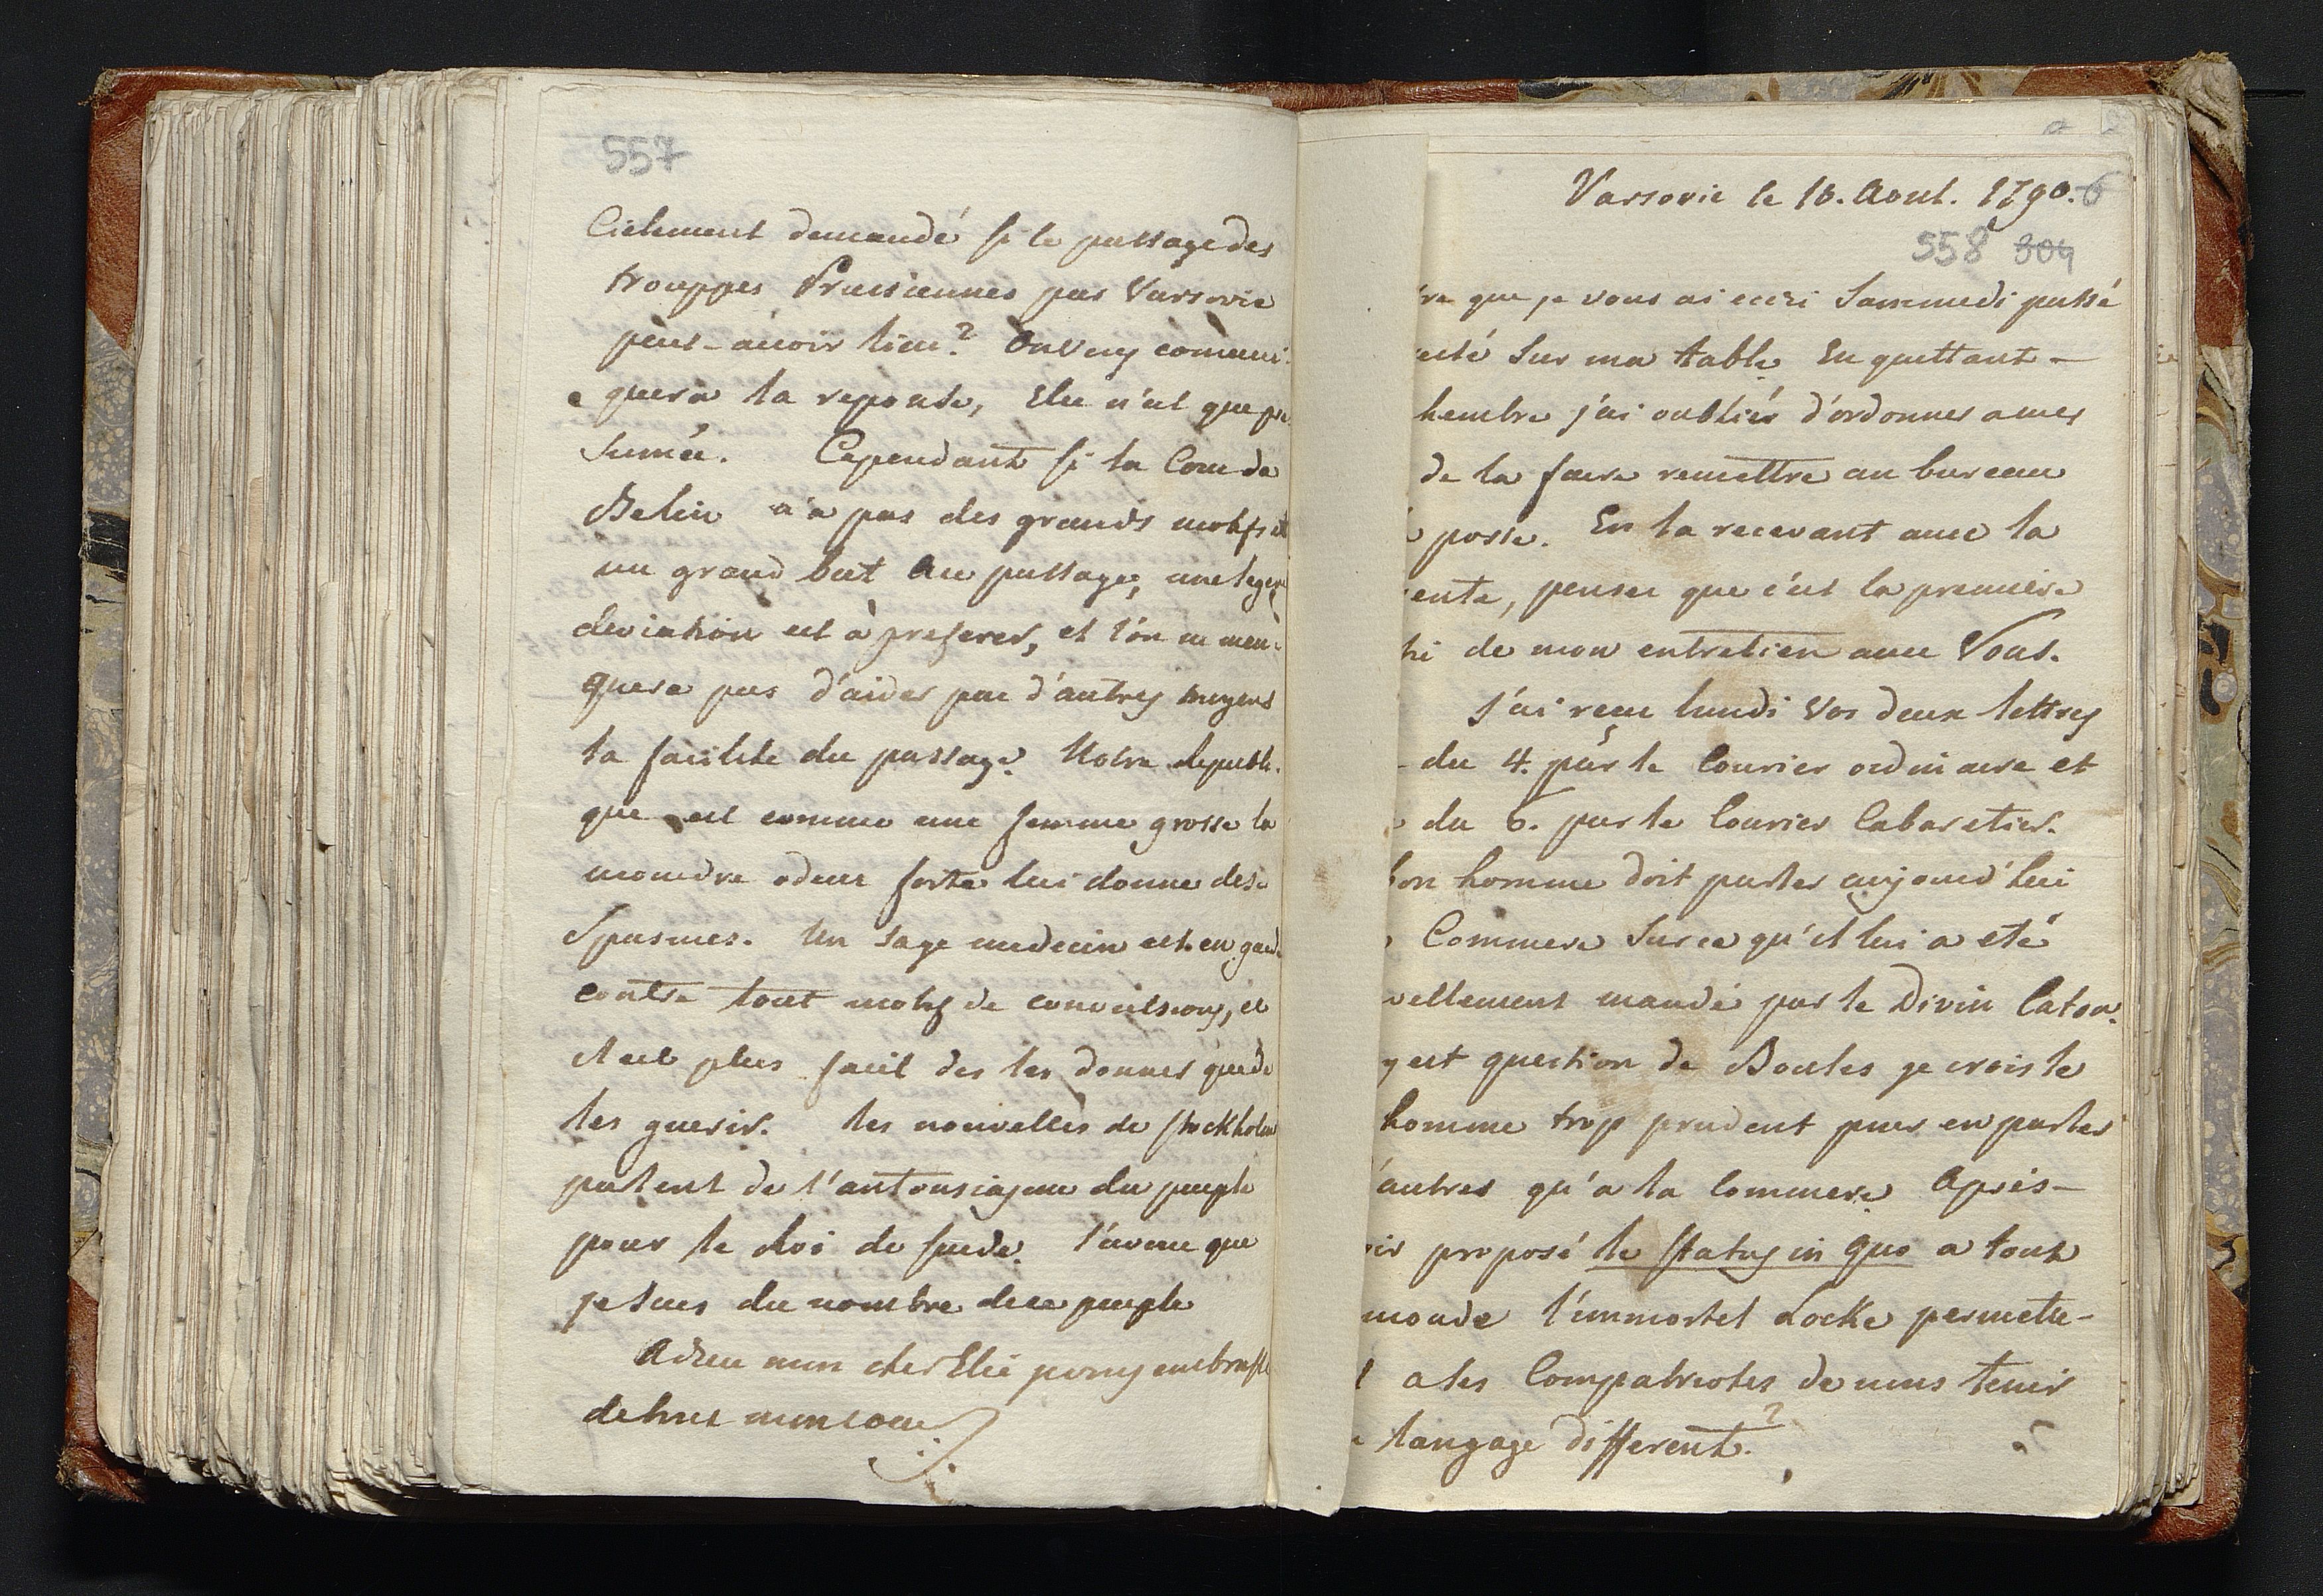 557
Cielement demandé si le passage des
trouppes Prussiennes par Varsovie
peut-avoir lieu? On Vous communi-
quera la reponse, Elle n'est que pre
sumée. Cependant si la Cour de
Belin n'a pas des grands motifs et
un grand but au passage, une legere
deviation est à preferer, et l'on ne man-
quera pas d'aider par d'autres moyens
la facilité du passage. Notre Republi-
que est comme une femme grosse la
moindre odeur forte lui donne des
Spasmes. Un sage medecin est en garde
contre tout motif de convulsions, et
il est plus facil des les donner que de
les guerir. les nouvelles de Stockholm
parlent de l'antousiasme du peuple
pour le Roi de Suede. J'avoue que
je suis du nombre de ce peuple
Adieu mon cher Elie je vous embrasse
de tout mon coeur
Varsovie le 18. Aout. 1790. 6
558 304
tre que je vous ai ecri Sammedi passé
esté sur ma table En quittant-
hembre j'ai oubliér d'ordonner a mes
de la faire remettre au bureau
poste. En la recevant avec la
ente, penser que c'est la premiere
ti de mon entretien avec Vous.
J'ai reçu lundi Vos deux lettres
du 4. par le Courier ordinaire et
du 6. par le Courier Cabaretier.
bon homme doit parler aujourd'hui
Commere sur ce qu'il lui a eté
vellement mandé par le Divin Caton.
y est question de Boules je crois le
homme trop prudent pour en parler
'autres qu'a la Commere Apres-
oir proposé le status in quo a tout
monde l'immortel Locke permette-
t a ses Compatriotes de nous tenir
langage different?